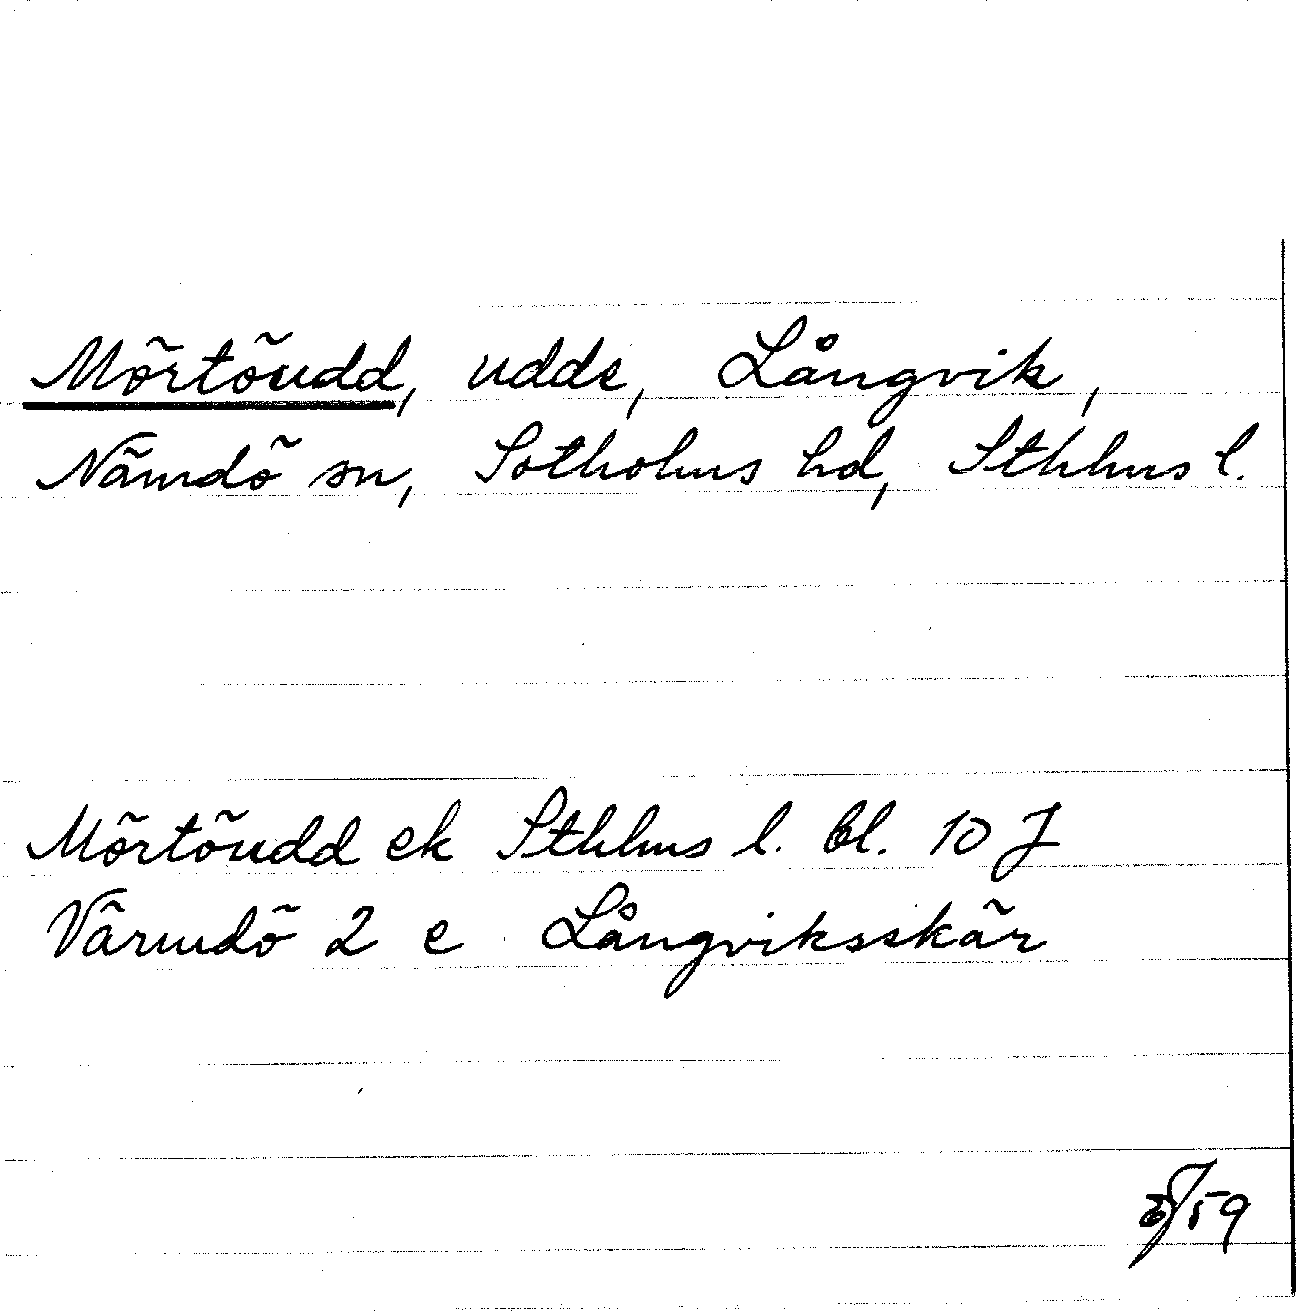 Mörtöudd, udde, Långvik,
Nämdö sn, Sotholms hd, Sthlms l.
Mörtöudd ek Sthlms l. bl. 10 J
Värmdö 2 e Långviksskär
59